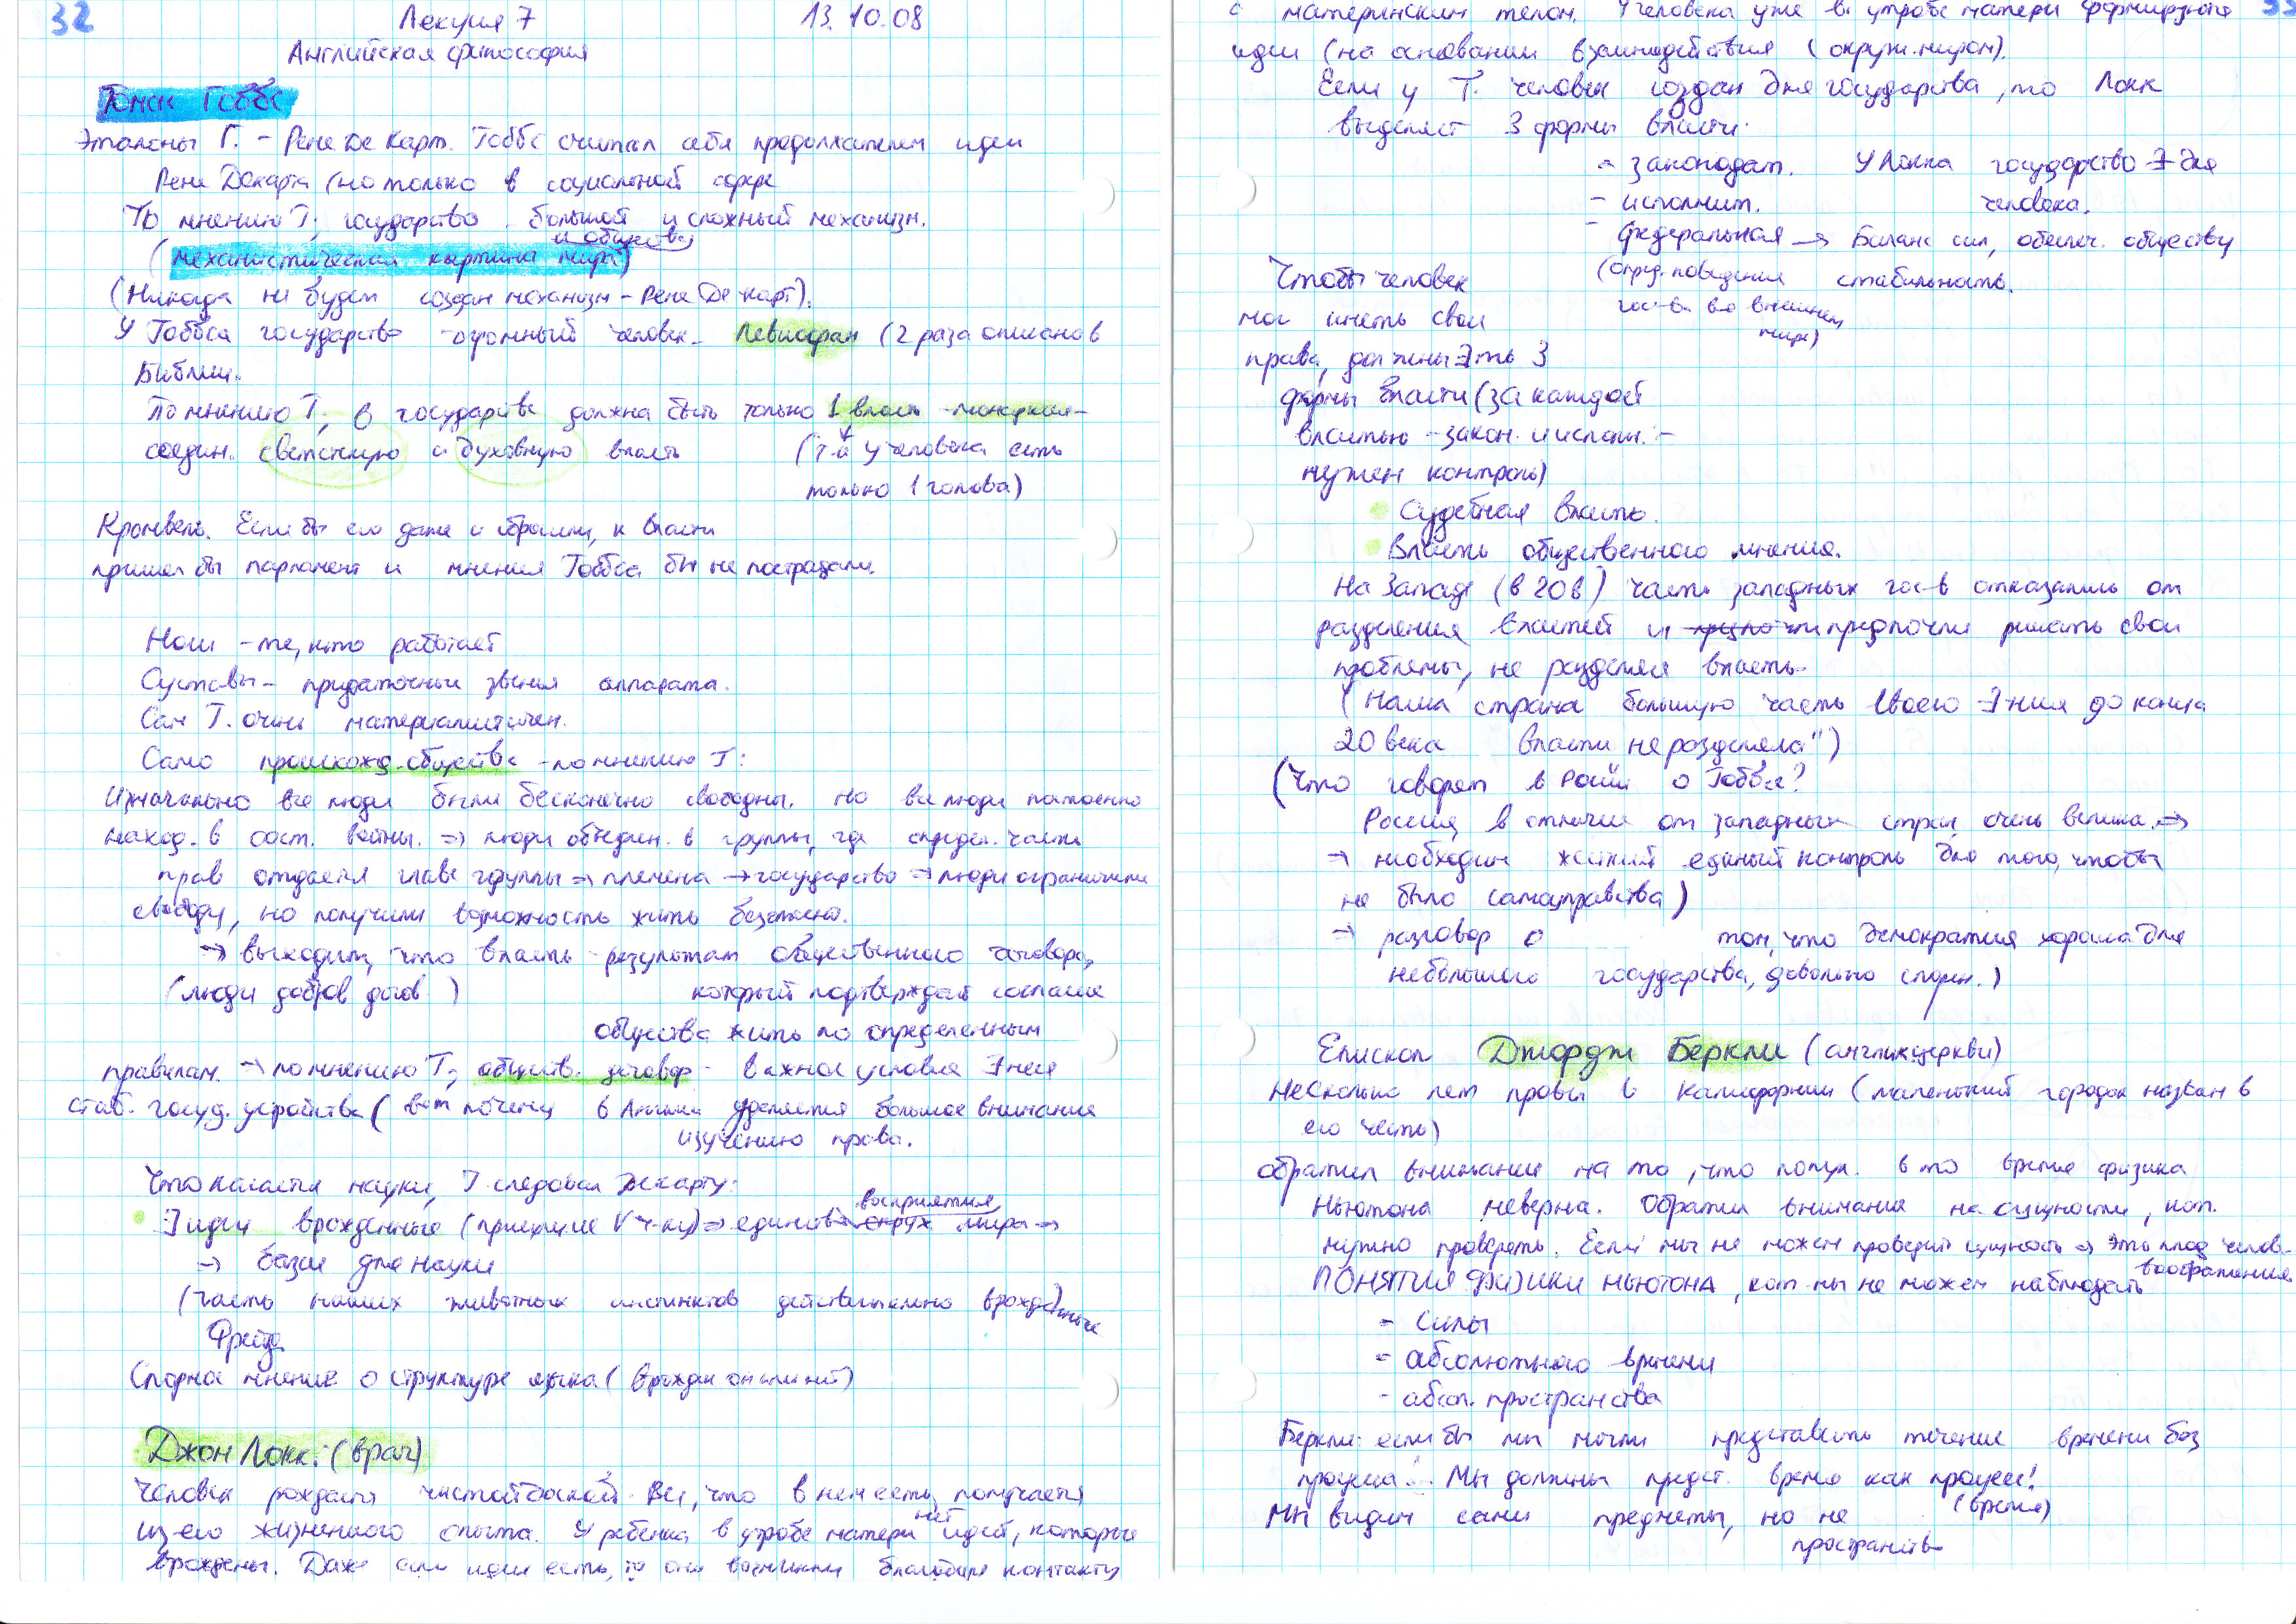 32
Лекция 7 13.10.08
Английская философия
Томас Гоббс
Эталоны Г. – Рене Де Карт. Гоббс считал себя продолжателем идеи
Рене Декарта (но только в социальной сфере
По мнению Г, государство большой и сложный механизм.
и общества
(механистическая картина мира)
(Никогда не будет создан механизм – Рене Де карт).
У Гоббса государство – огромный человек. Левиафан (2 раза описан в
Библии.
По мнению Г, в государстве должна быть только 1 власть – монархия –
соедин. светскую и духовную власть (т.к у человека есть
только 1 голова)
Кромвель. Если бы его даже и сбросили, к власти
пришел бы парламент и мнения Гоббса бы не пострадали.
Ноги – те, кто работает
Суставы – придаточные звенья аппарата.
Сам Г. очень материалистичен.
Само происхожд. общества – по мнению Г:
Изначально все люди были бесконечно свободны. Но все люди постоянно
наход. в сост. войны. ⇒ люди объедин. в группы, где определ. часть
прав отдается главе группы ⇒ племена → государство ⇒ люди ограничили
свободу, но получили возможность жить безопасно.
→ выходит, что власть – результат общественного договора,
(люди добров догов.) который подтверждает согласие
общества жить по определенным
правилам. → по мнению Г, обществ. договор – важное условие Ǝ ния
стаб. госуд. устройства (вот почему в Англии уделяется большое внимание
изучению права.
Что касается науки, Г следовал Декарту:
Ǝ идеи врожденные (присущие ∀ ч-ку) ⇒ единств восприятия мира →
→ базис для науки
(часть наших животных инстинктов действительно врожденные
Фрейд
Спорное мнение о структуре языка (врожден он или нет)
Джон Локк: (врач)
Человек рождается чистой доской. Все, что в нем есть, получается
из его жизненного опыта. У ребенка в утробе матери нет идей, которые
врождены. Даже если идеи есть, то они возникли благодаря контакту
33
с материнским телом. У человека уже в утробе матери формируются
идеи (на основании взаимодействия с окруж. миром).
Если у Г. человек создан для государства, то Локк
выделяет 3 формы власти:
– законодат. У Локка государство Ǝ для
– исполнит. человека.
– федеральная → Баланс сил, обеспеч. обществу
(опред. поведение стабильность.
гос-ва во внешнем
мире)
Чтобы человек
мог иметь свои
права, должны Ǝ ть 3
формы власти (за каждой
властью – закон. и исполн. –
нужен контроль)
Судебная власть.
Власть общественного мнения.
На Западе (в 20в) часть западных гос-в отказались от
разделения властей и предпочли решать свои
проблемы, не разделяя власть.
(Наша страна большую часть своего Ǝ ния до конца
20 века власти не разделяла")
(Что говорят в Росии о Гоббсе?
Россия, в отличие от западных стран, очень велика. ⇒
→ необходим жесткий единый контроль для того, чтобы
не было самоуправства)
→ разговор о том, что демократия хороша для
небольшого государства, довольно спорен.)
Епископ Джордж Беркли (англик. церкви)
Несколько лет провел в Калифорнии (маленький городок назван в
его честь)
обратил внимание на то, что популя. в то время физика
Ньютона неверна. Обратил внимание на сущности, кот.
нужно проверять. Если мы не можем проверить сущность ⇒ это плод челове.
воображения
ПОНЯТИЯ ФИЗИКИ НЬЮТОНА, кот. мы не можем наблюдать
– Силы
– абсолютного времени
– абсол. пространства
Беркли: если бы мы могли представить течение времени без
процесса... Мы должны предст. время как процесс!
Мы видим сами предметы, но не (время)
пространств